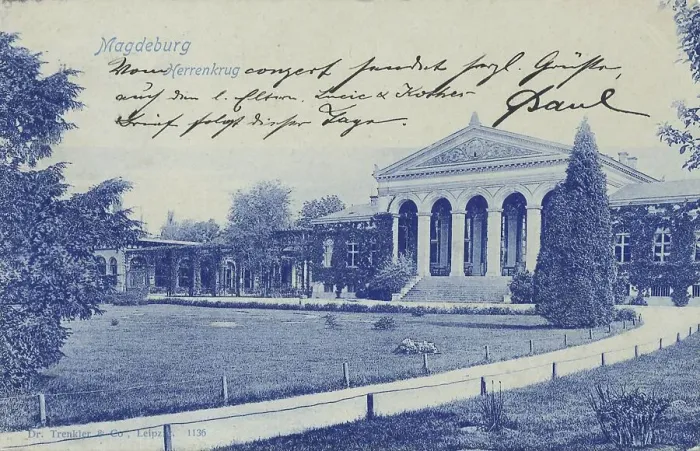 Magdeburg
Vom Herrenkrug concert sendet herzl. Grüße,
auch den l. Eltern, Lucie & Käthe
Paul
Brief folgt dieser Tage.
Dr. Trenkler & Co., Leipzig. 1136